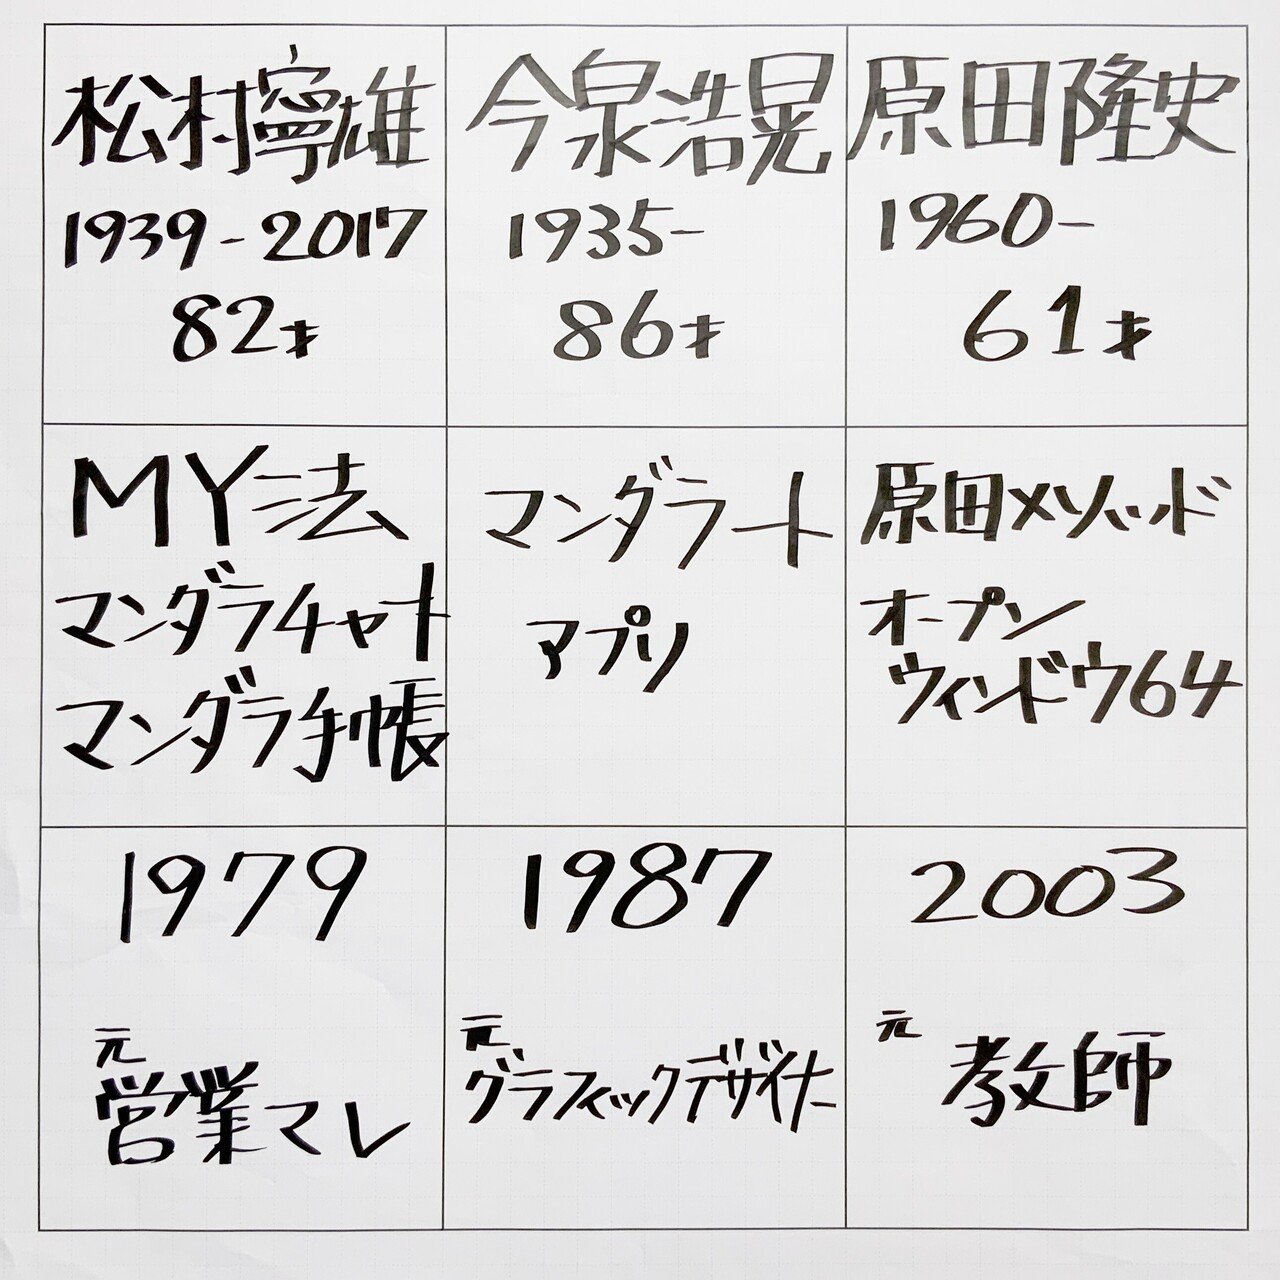 松村寧雄
1939-2017
82才
今泉浩晃
1935-
86才
原田隆史
1960-
61才
MY法
マンダラチャート
マンダラ手帳
マンダラート
アプリ
原田メソッド
オープン
ウィンドウ64
1979
元
営業マレ
1987
元
グラフィックデザイナー
2003
元
教師